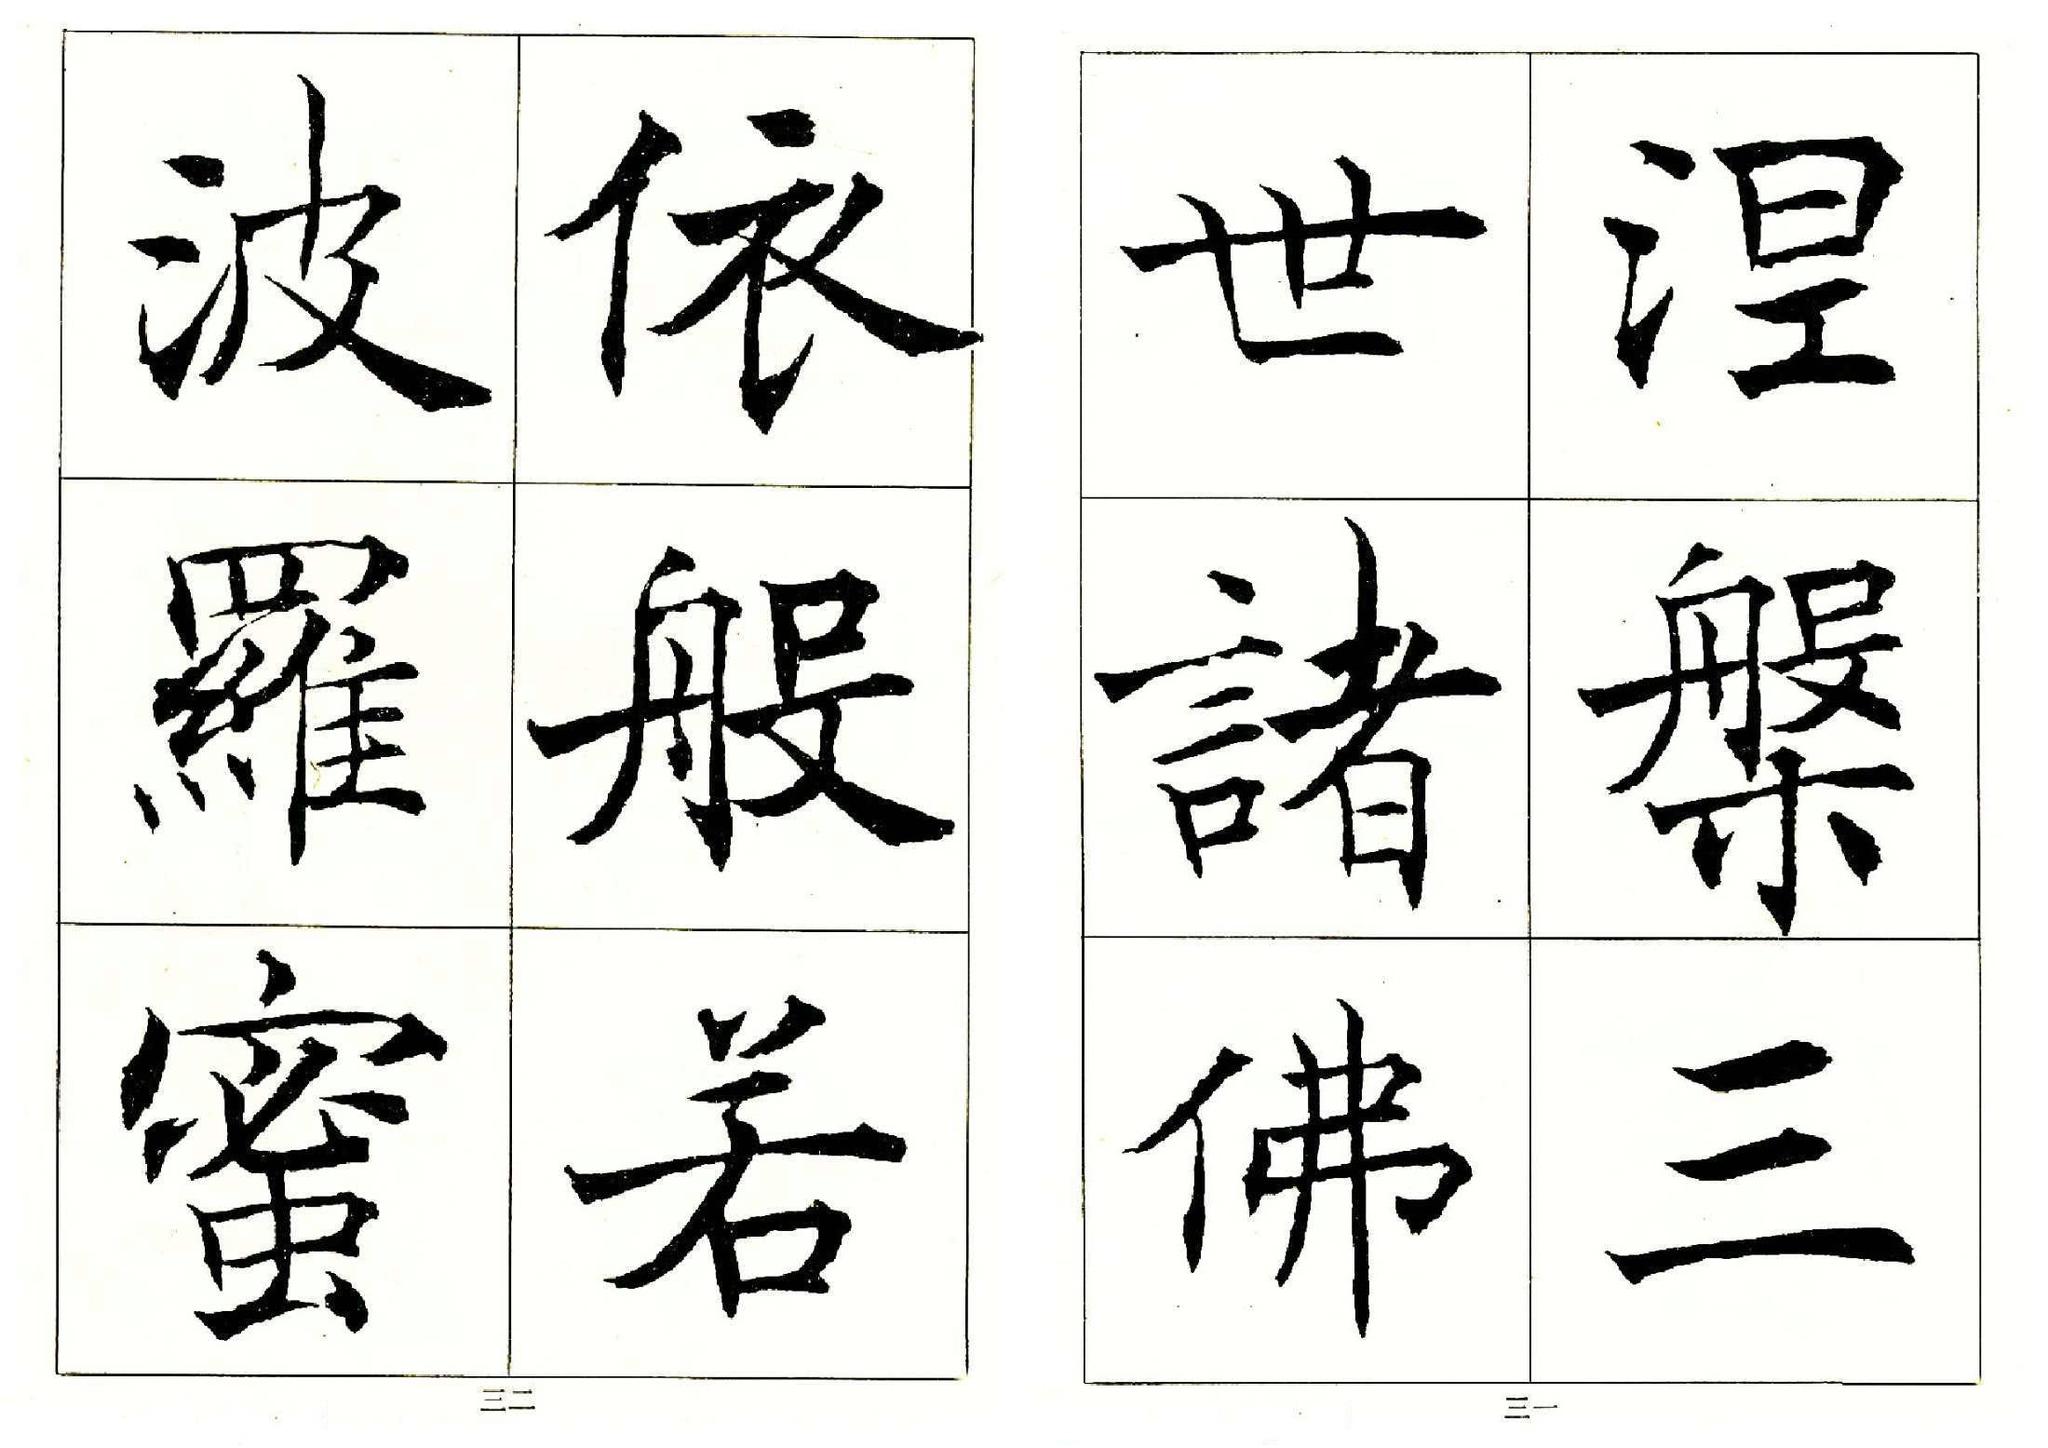 涅槃三
世諸佛
三一
依般若
波羅蜜
三二